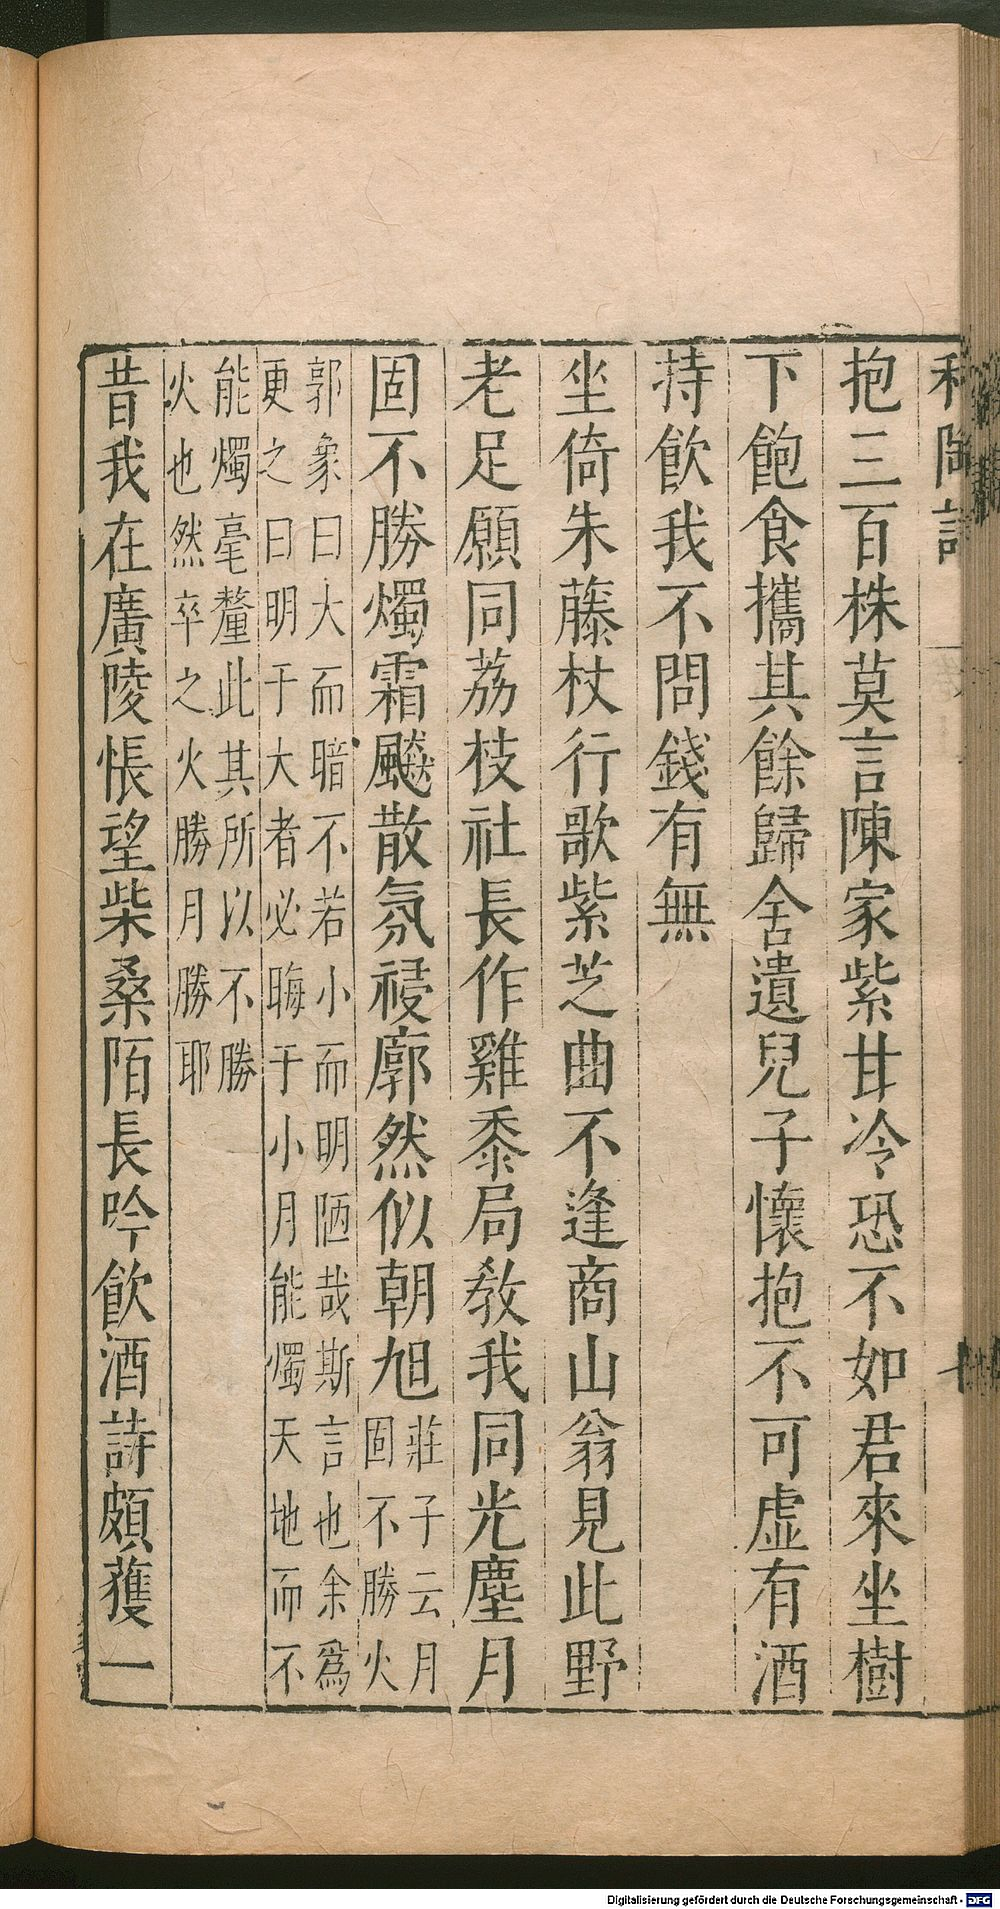 和陶詩
抱三百株莫言陳家紫甘冷恐不如君來坐樹
下飽食攜其餘歸舍遺兒子懷抱不可虛有酒
持飲我不問錢有無
坐倚朱藤杖行歌紫芝曲不逢商山翁見此野
老足願同荔枝社長作雞黍局教我同光塵月
固不勝燭霜飈散氛祲廓然似朝旭莊子云月固不勝火
郭象曰大而暗不若小而明陋哉斯言也余爲
更之曰明于大者必晦于小月能燭天地而不
能燭毫釐此其所以不勝
火也然卒之火勝月勝耶
昔我在廣陵悵望柴桑陌長吟飲酒詩頗獲一
Digitalisierung gefördert durch die Deutsche Forschungsgemeinschaft - DFG